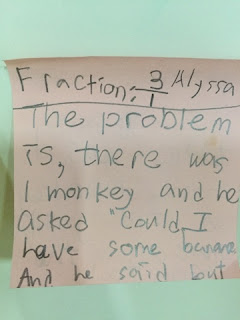 Fraction: 3/1 Alyssa
The problem
is, there was
1 monkey and he
asked "Could I
have some banana
And he said but